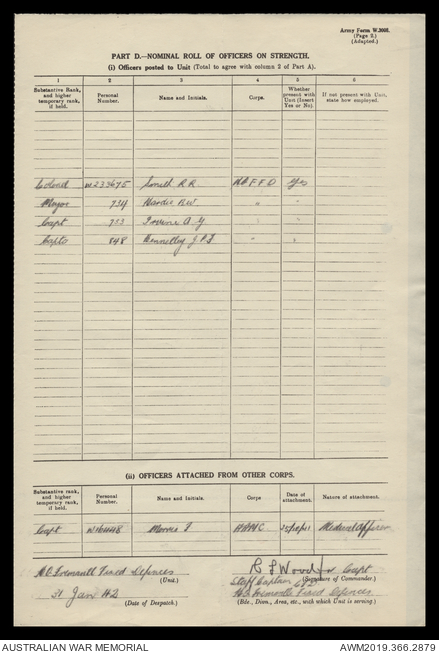 Army Form W.3008.
(Page 2.)
(Adapted.)
PART D.—NOMINAL ROLL OF OFFICERS ON STRENGTH.
(i) Officers posted to Unit (Total to agree with column 2 of Part A).
1 2 3 4 5 6
Substantive Rank, and higher temporary rank, if held. Personal Number. Name and Initials. Corps. Whether present with Unit (Insert Yes or No). If not present with Unit, state how employed.
Colonel W233675 Smith R.R. Yes
Major 734 Hardie R.W. "
Capt 753 Irvine A.G. " "
Capt 848 Kennelley J.P.F. " "
(ii) OFFICERS ATTACHED FROM OTHER CORPS.
Substantive rank, and higher temporary rank, if held. Personal Number. Name and Initials. Corps Date of attachment. Nature of attachment.
Capt Morris J AAMC Medical Officer
HQ Fremantle Fixed Defences
(Unit.)
R S Wood Capt
Staff Captain
(Signature of Commander.)
31 Jan 42
(Date of Despatch.)
HQ Fremantle Fixed Defences
(Bde., Divn., Area, etc., with which Unit is serving.)
AUSTRALIAN WAR MEMORIAL
AWM2019.366.2879